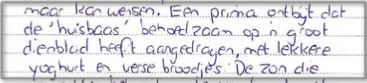 maar kan wensen. Een prima ontbijt dat
de 'huisbaas' behoedzaam op 'n groot
dienblad heeft aangedragen, met lekkere
yoghurt en verse broodjes. De zon die